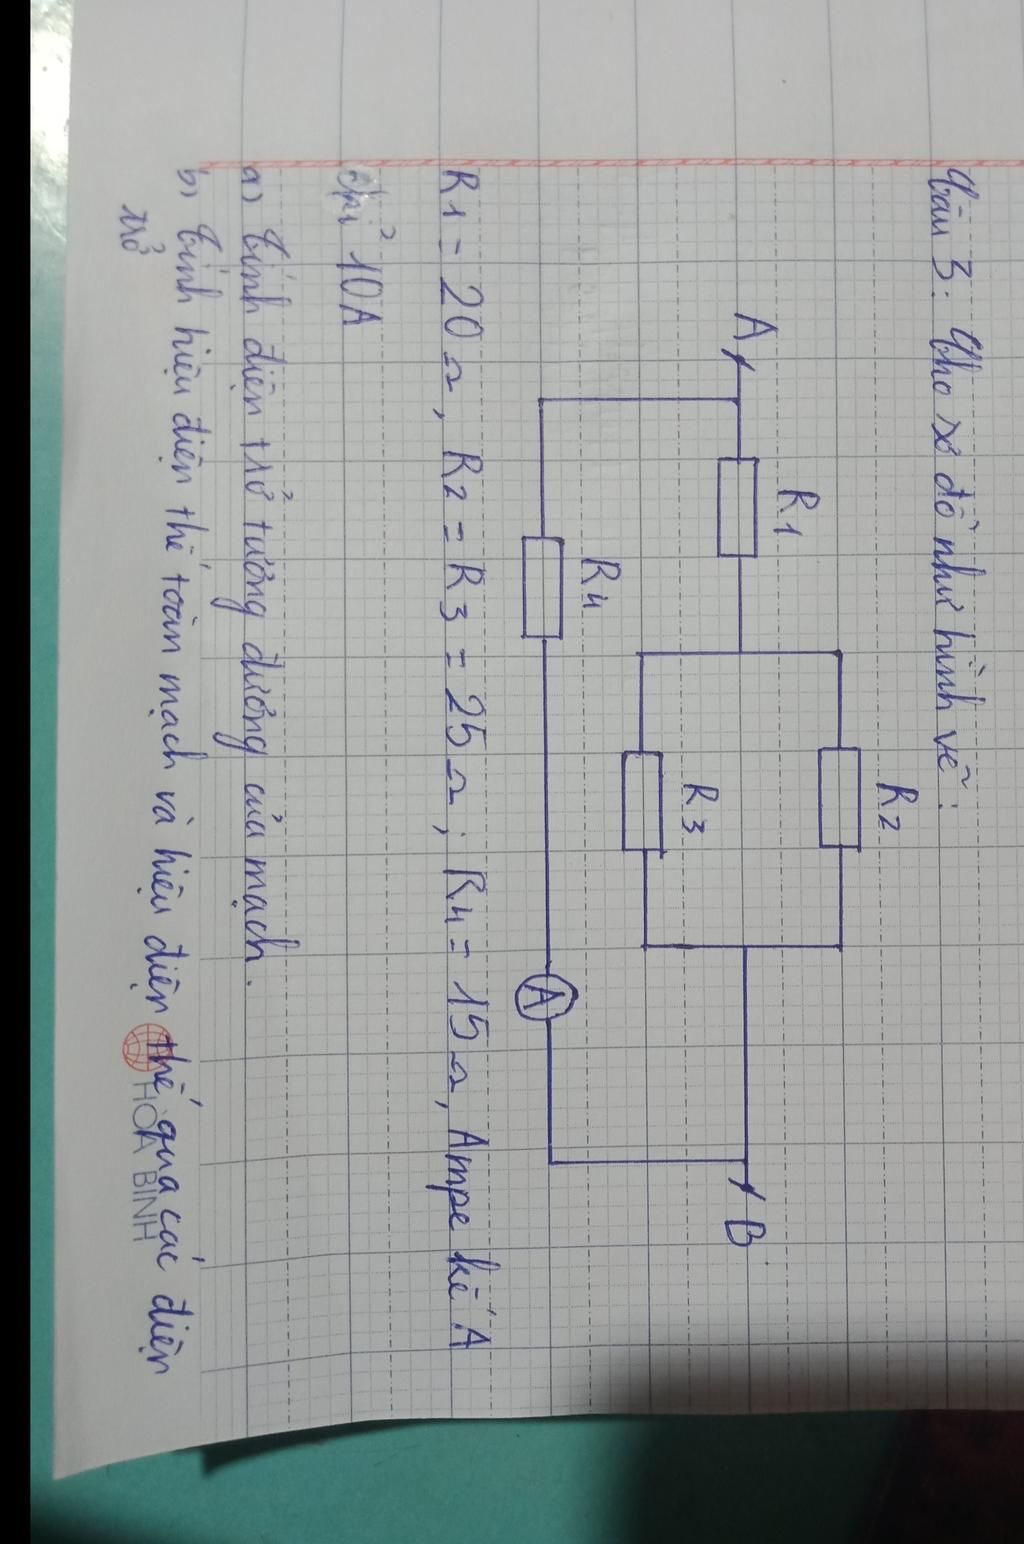 Câu 3: Cho sơ đồ như hình vẽ:
R2
R1
A
B
R3
R4
A
R1 = 20Ω, R2 = R3 = 25Ω; R4 = 15Ω, Ampe kế A
chỉ 10A
a) Tính điện trở tương đương của mạch.
b) Tính hiệu điện thế toàn mạch và hiệu điện thế qua các điện
trở
HÒA BÌNH